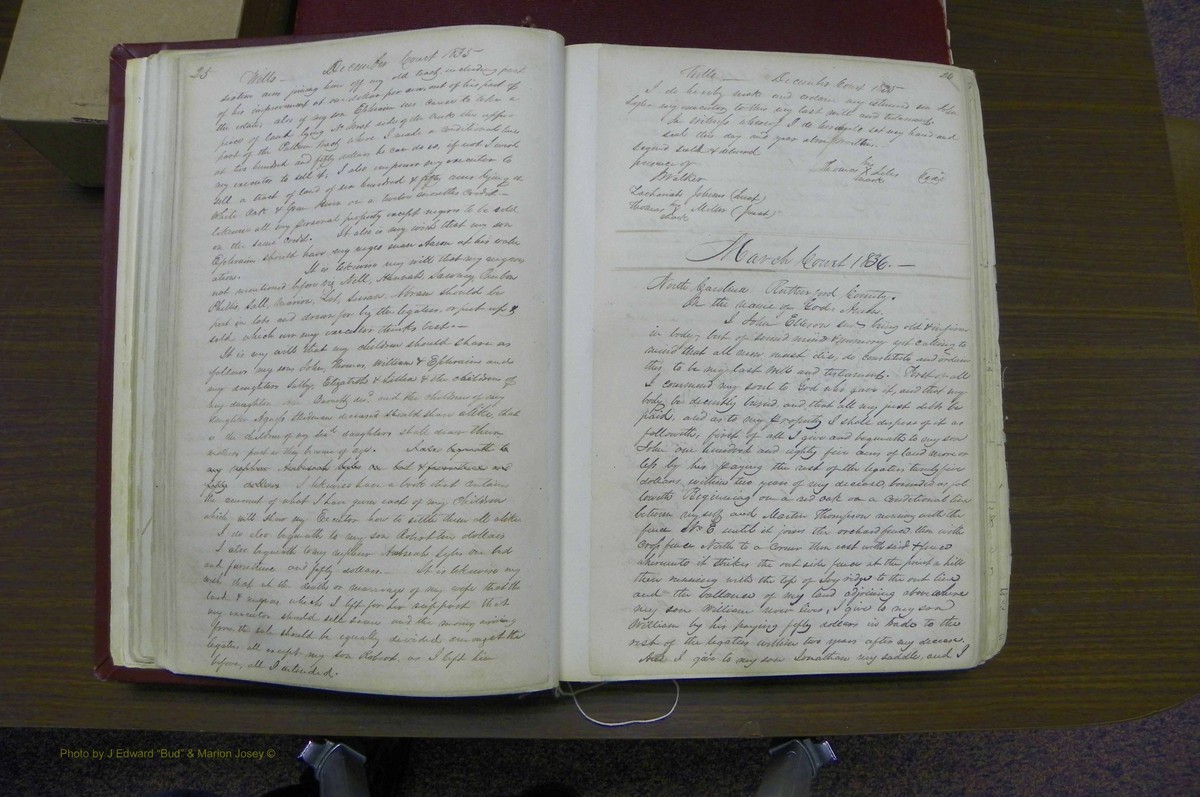 25 Wills — December Court 1835
sixteen acres joining him off my old tract including part
of his improvement at one dollar per acre out of his part of
the estate, also if my son Ephraim sees cause to take a
piece of land lying N. West side of the creek the upper
part of the Putnam tract where I made a conditional line
at two hundred and fifty dollars he can do so, if not I wish
my executor to sell it. I also impower my executor to
sell a tract of land of one hundred & fifty acres lying on
White Oak & Green River on a twelve months credit —
likewise all my personal property except negroes to be sold
on the same credit. It also is my wish that my son
Ephraim should have my negro man Aaron at his valu
ation. It is likewise my will that my negroes
not mentioned before viz Nell, Hannah, Reuben
Phillis, Sall, Marian, Let, Susan, Abram should be
put in lots and drawn for by the legatees, or put up &
sold which ever my executor thinks best. —
It is my will that my children should share as
follows my sons John, Thomas, William & Ephraim and
my daughters Sally, Elizabeth & & the children of
my daughter and the children of my
daughter deceased should share alike, that
is the children of my daughters shall draw their
mothers part as they become of age. I also bequeath to
my nephew one bed & furniture and
fifty dollars I likewise have a book that contains
the amount of what I have given each of my Children
which will show my Executor how to settle them all alike
I do also bequeath to my son Robert ten dollars
I also bequeath to my nephew one bed
and furniture and fifty dollars — It is likewise my
wish that at the death or marriage of my wife that the
land & negroes which I left for her support that
my executor should sell same and the money arising
from the sale should be equally divided amongst the
legatees all except my son Robert, as I left him
before, all I intended.
Wills — December Court 1835
I do hereby make and ordain my esteemed son
my executor to this my last will and testament.
In witness whereof I do hereunto set my hand and
seal the day and year above written.
signed seald & deliverd
presence of
Walker
Thomas his X mark Liles Seal
Zachariah Johnson (Jurat)
Thomas his X mark Miller (Jurat)
March Court 1836. —
North Carolina Rutherford County.
In the name of God Amen.
I John Elson senr being old & infirm
in body, but of sound mind & memory yet calling to
mind that all men must die, do constitute and ordain
this to be my last Will and testament. First of all
I commend my soul to God who gave it, and that my
body be decently buried, and that all my just debts be
paid, and as to my Property I shall dispose of it as
followeth, first of all I give and bequeath to my son
John one hundred and eighty five acres of land more or
less by his paying the rest of the legatees twenty five
dollars within two years of my decease, bounded as fol
loweth Beginning on a red oak on a conditional line
between myself and Martin Thompson running with the
fence No E. until it joins the orchard fence then with
cross fence North to a corner then west with said fence
until it strikes the out side fence at the point a hill
then running with the top of Ivy ridge to the out line
and the ballance of my land adjoining above where
my son William now lives, I give to my son
William by his paying fifty dollars in trade to the
rest of the legatees within two years after my decease.
Also I give to my son Jonathan my saddle, and I
Photo by J Edward "Bud" & Marion Josey ©